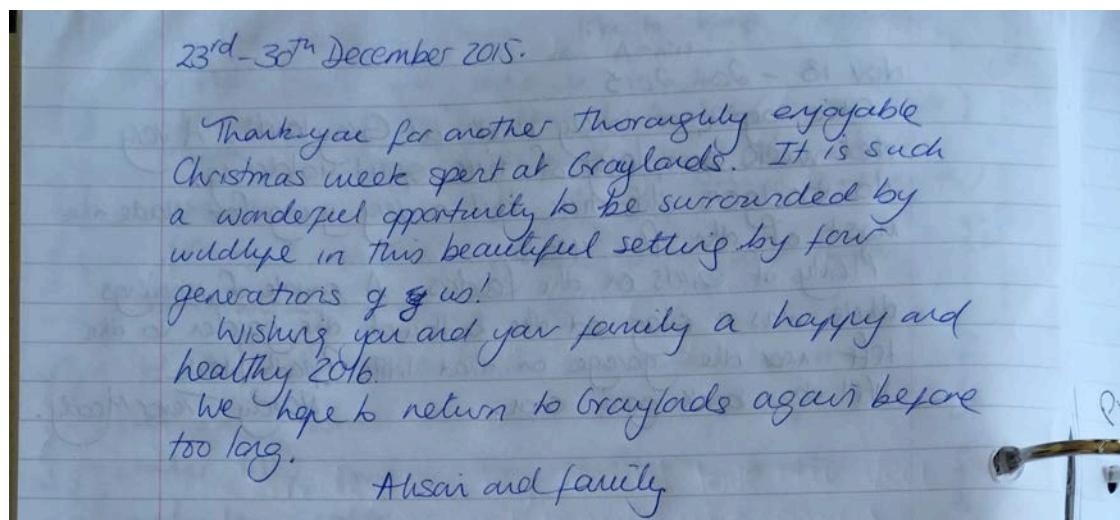 23rd - 30th December 2015.
Thank you for another thoroughly enjoyable
Christmas week spent at Graylands. It is such
a wonderful opportunity to be surrounded by
wildlife in this beautiful setting by four
generations of us!
Wishing you and your family a happy and
healthy 2016.
We hope to return to Graylands again before
too long.
and family